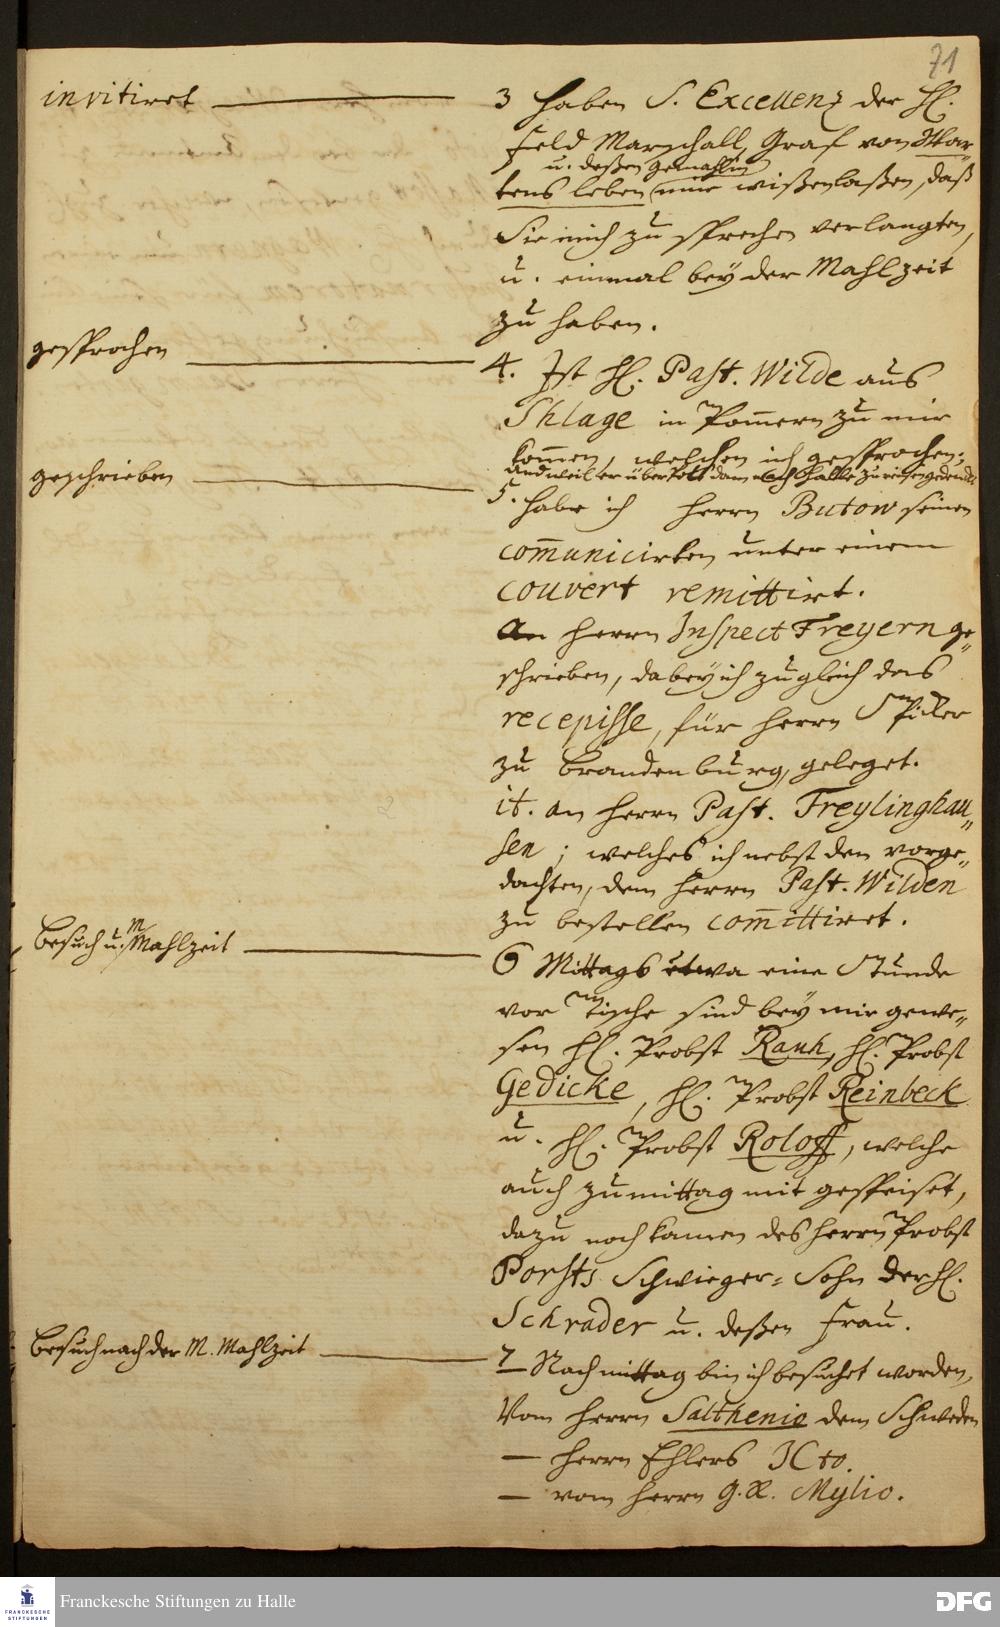 71
invitiret
3 haben S. Excellenz der H.
Feld Marschall, Graf von War
u. deßen Gemahlin
tens leben mir wißen laßen, daß
Sie mich zu sprechen verlangten,
u. einmal bey der Mahlzeit
zu haben.
gesprochen
4. Ist H. Past. Wilde aus
Shlage in Pom̄ern zu mir
kom̄en, welchen ich gesprochen;
und weil er über Potsdam nach Halle zu reisen gedencket
geschrieben
5. habe ich herrn Butow seinen
com̄unicirten unter einem
couvert remittirt.
An herrn Inspect Freyern ge„
schrieben, dabey ich zugleich das
recepisse, für herrn Spicker
zu Brandenburg, geleget.
it. an herrn Past. Freylinghau„
sen; welches ich nebst den vorge„
dachten, dem herrn Past. Wilden
zu bestellen com̄ittiret.
Besuch u. M. Mahlzeit
6 Mittags etwa eine Stunde
vor Tische sind bey mir gewe„
sen H. Probst Rauh, H. Probst
Gedicke, H. Probst Reinbeck
u. H. Probst Roloff, welche
auch zu mittag mit gespeiset,
dazu noch kamen des herrn Probst
Porsts Schwieger-Sohn der H.
Schrader u. deßen Frau.
Besuch nach der M. Mahlzeit
7 Nachmittag bin ich besuchet worden,
Vom herrn Salthenio dem Schweden
— herrn Ehlers JCto.
— vom herrn G. R. Mylio.
Franckesche Stiftungen zu Halle
FRANCKESCHE
STIFTUNGEN
DFG